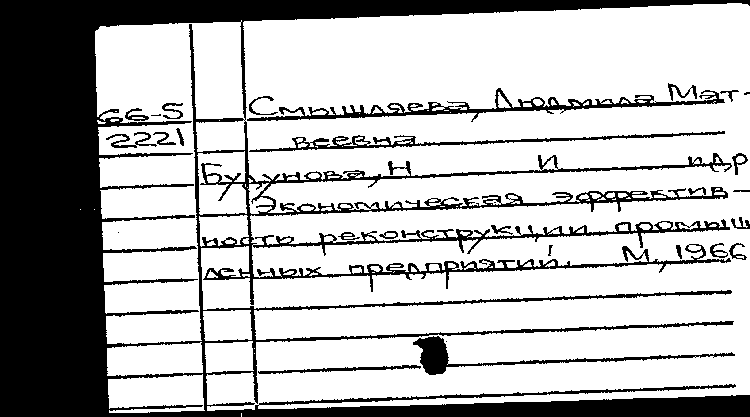 66-5 Смышляева, Людмила Мат-
2221 веевна
Будунова, Н И идр
Экономическая эффектив-
ность реконструкции промыш
ленных предприятий. М., 1966